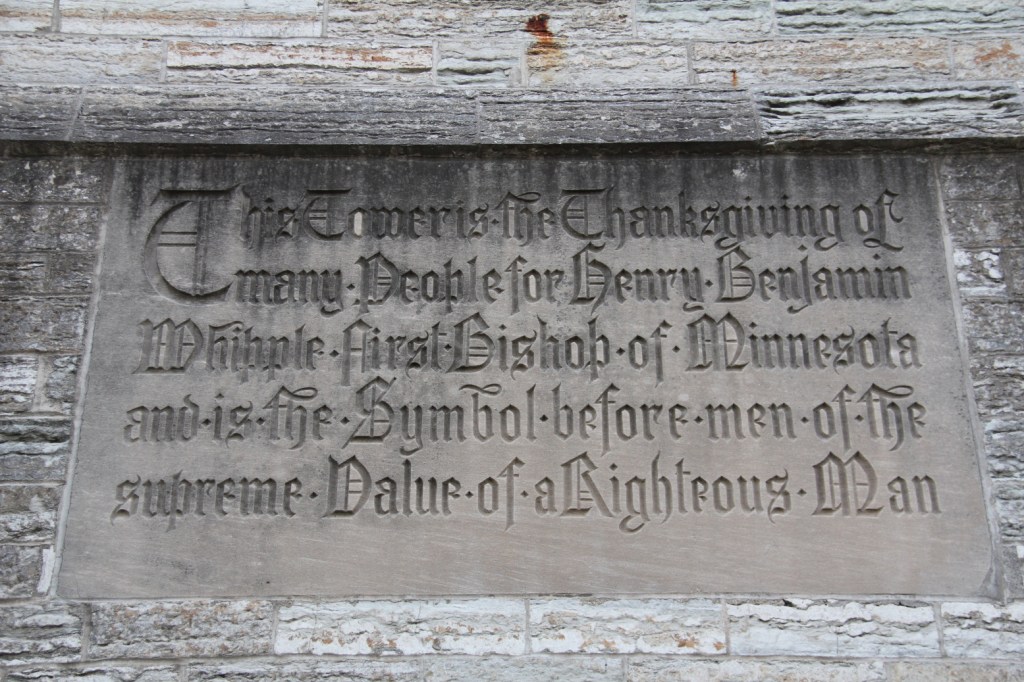 This Tower is·the Thanksgiving of
many·People for Henry·Benjamin
Whipple·first·Bishop·of·Minnesota
and·is·the·Symbol·before·men·of·the
supreme·Value·of·a Righteous·Man